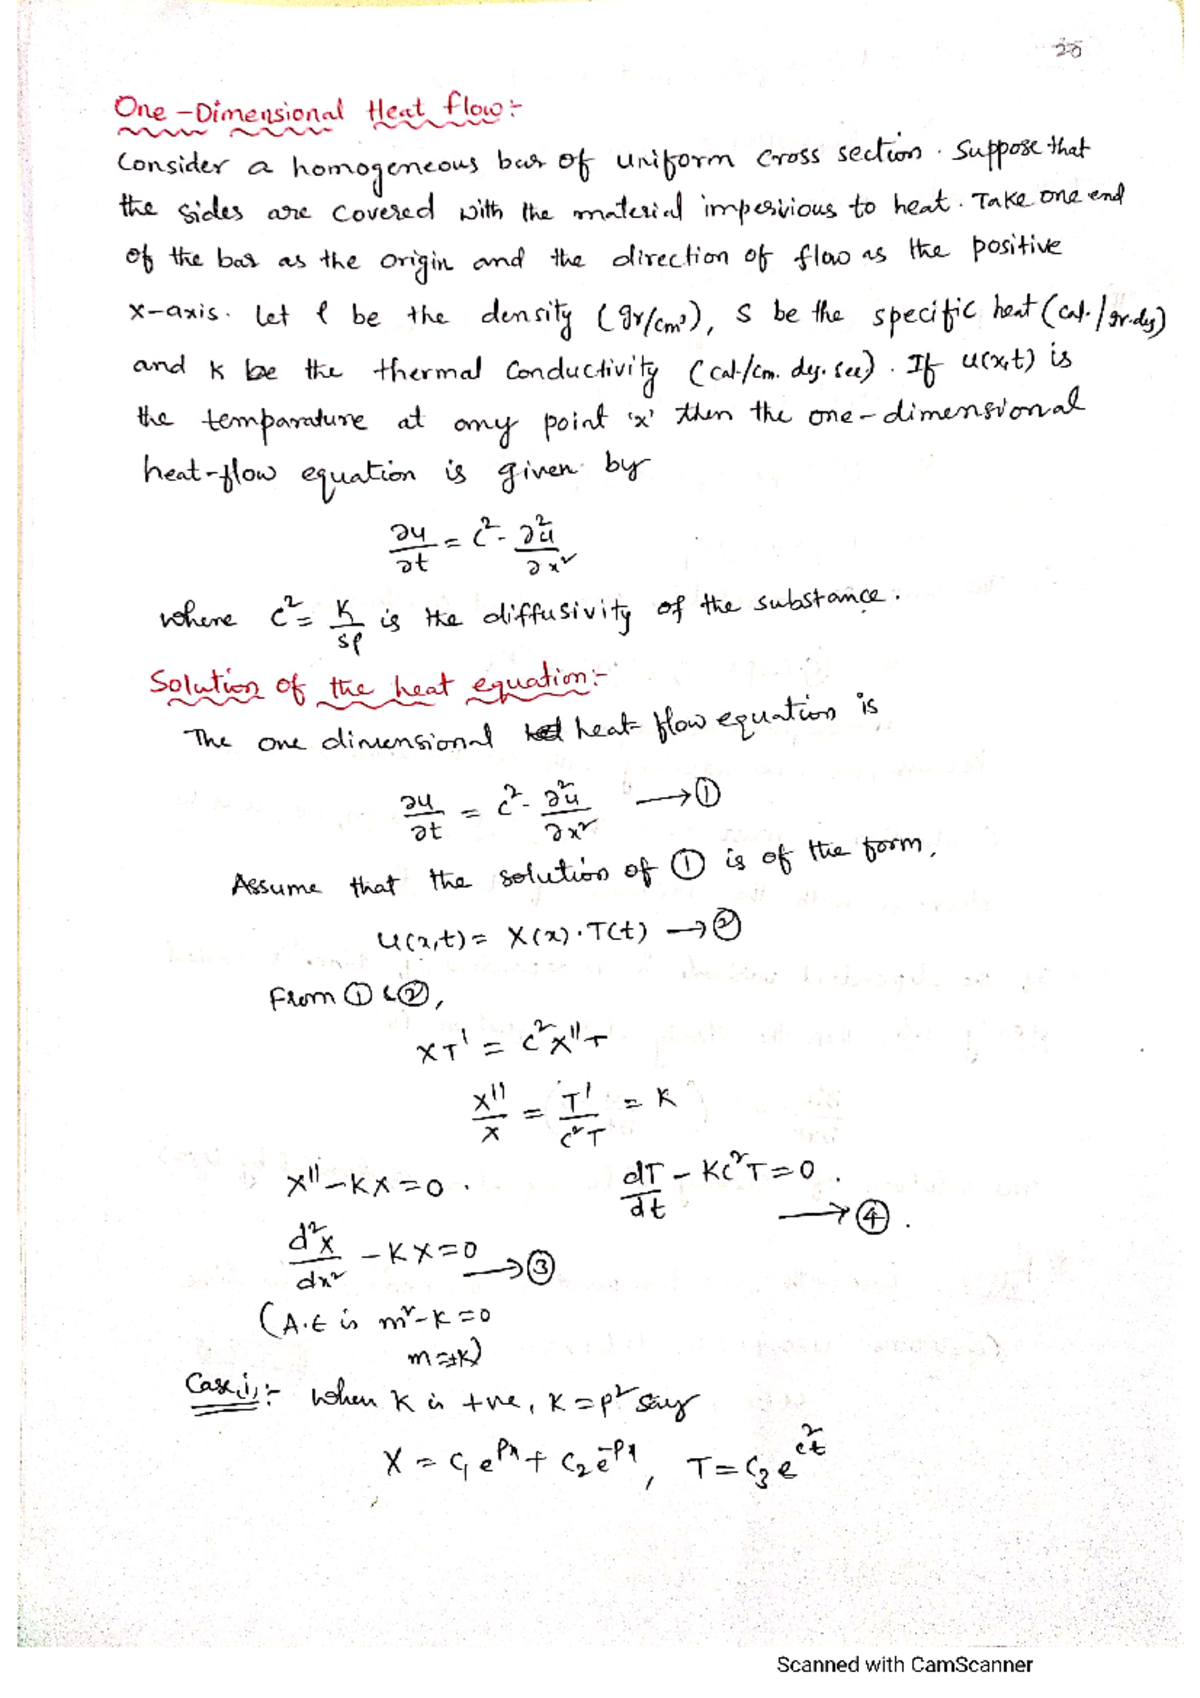 20
One-Dimensional Heat flow:-
Consider a homogeneous bar of uniform cross section. Suppose that
the sides are covered with the material impervious to heat. Take one end
of the bar as the origin and the direction of flow as the positive
x-axis. Let ρ be the density (gr/cm³), S be the specific heat (cal./gr.deg)
and K be the thermal conductivity (cal./cm. deg. sec). If u(x,t) is
the temparature at any point 'x' then the one-dimensional
heat-flow equation is given by
∂u/∂t = c². ∂²u/∂x²
where c² = K/sρ is the diffusivity of the substance.
Solution of the heat equation:-
The one dimensional heat flow equation is
∂u/∂t = c². ∂²u/∂x² → ①
Assume that the solution of ① is of the form,
u(x,t) = X(x).T(t) → ②
From ① & ②,
XT' = c²X''T
X''/X = T'/c²T = K
X''-KX=0. dT/dt - Kc²T=0. → ④.
d²X/dx² - KX=0 → ③
(A.E is m²-K=0
m=±K)
Case i,:- When K is +ve, K=p² say
X = c₁e^px + c₂e^-px, T = c₃e^c²t
Scanned with CamScanner